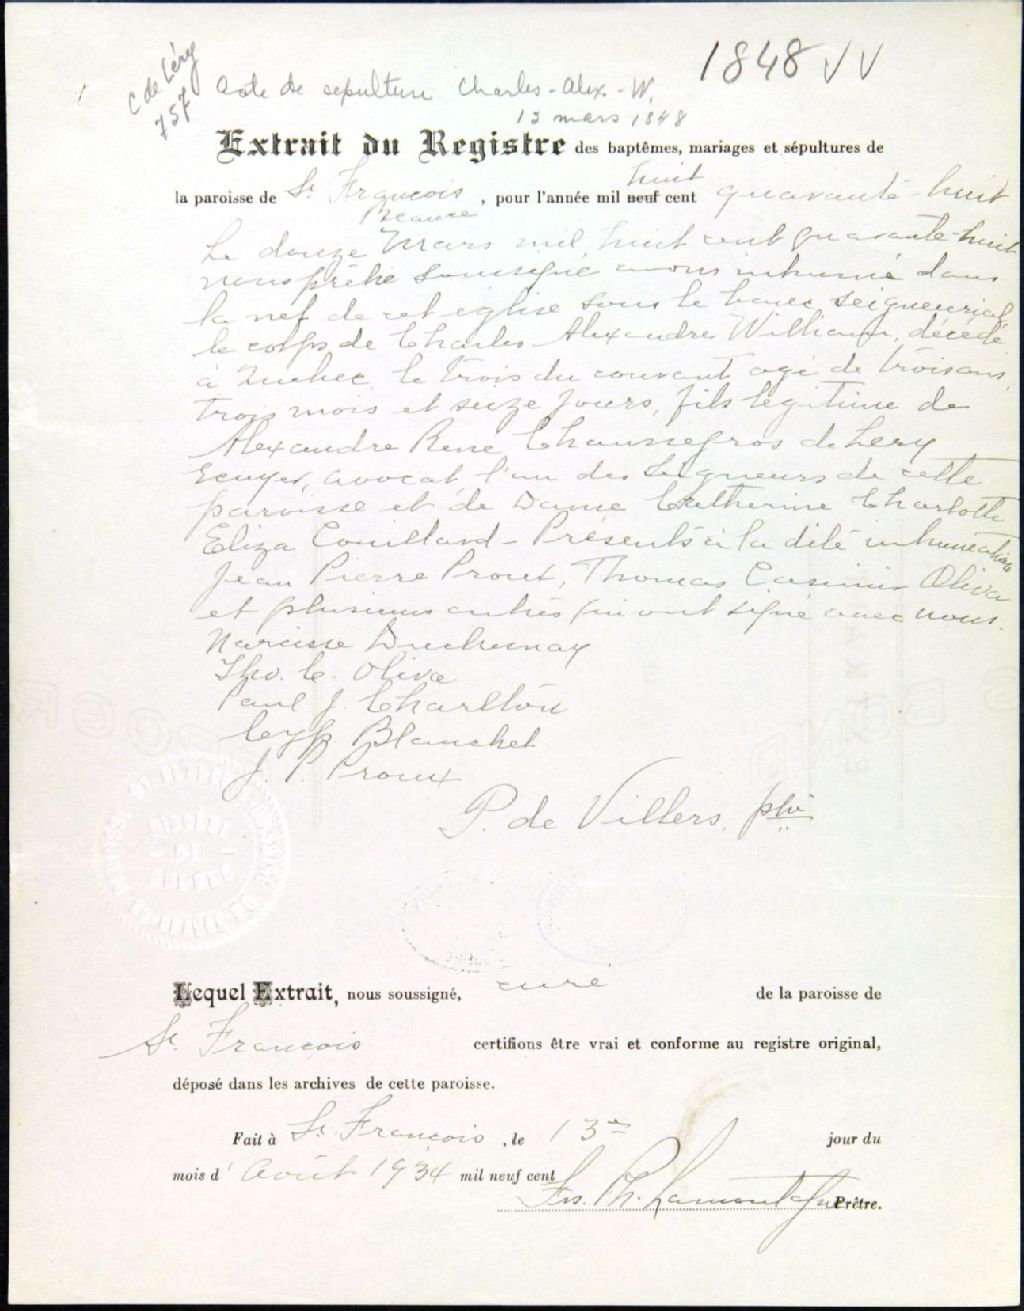 1848 VV
C de Léry
757
Acte de sépulture Charles-Alex.-W.
12 mars 1848
Extrait du Registre des baptêmes, mariages et sépultures de
la paroisse de St. François Beauce, pour l'année mil neuf huit cent quarante-huit
Le douze Mars mil huit cent quarante-huit
nous prêtre soussigné avons inhumé dans
la nef de cet église sous le banc seigneurial,
le corps de Charles Alexandre William, décédé
à Quebec, le trois du courant agé de trois ans,
trois mois et seize jours, fils légitime de
Alexandre René Chaussegros de Lery
Ecuyer, avocat l'un des Seigneurs de cette
paroisse et de Dame Catherine Charlotte
Eliza Couillard - Présents à la dite inhumation
Jean Pierre Proux, Thomas Casimir Oliva
et plusieurs autres qui ont signé avec nous.
Narcisse Duchesnay
Tho. C. Oliva
Paul J. Charlton
Cyp. Blanchet
J. P. Proux
P. de Villers, ptre
Lequel Extrait, nous soussigné, curé de la paroisse de
St. François certifions être vrai et conforme au registre original,
déposé dans les archives de cette paroisse.
Fait à St. François, le 13me jour du
mois d'Août 1934 mil neuf cent
Frs. Th. Lamontagne Prêtre.